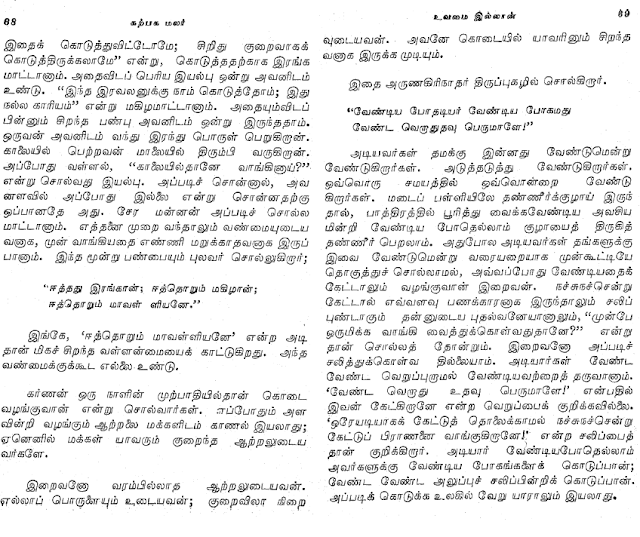 68 கற்பக மலர்
இதைக் கொடுத்துவிட்டோமே; சிறிது குறைவாகக்
கொடுத்திருக்கலாமே” என்று, கொடுத்ததற்காக இரங்க
மாட்டானாம். அதைவிடப் பெரிய இயல்பு ஒன்று அவனிடம்
உண்டு. “இந்த இரவலனுக்கு நாம் கொடுத்தோம்; இது
நல்ல காரியம்” என்று மகிழமாட்டானாம். அதையும்விடப்
பின்னும் சிறந்த பண்பு அவனிடம் ஒன்று இருந்ததாம்.
ஒருவன் அவனிடம் வந்து இரந்து பொருள் பெறுகிறான்.
காலையில் பெற்றவன் மாலையில் திரும்பி வருகிறான்.
அப்போது வள்ளல், “காலையில்தானே வாங்கினாய்?”
என்று சொல்வது இயல்பு. அப்படிச் சொன்னால், அவ
னளவில் அப்போது இல்லை என்று சொன்னதற்கு
ஒப்பானதே அது. சேர மன்னன் அப்படிச் சொல்ல
மாட்டானாம். எத்தனை முறை வந்தாலும் வண்மையுடைய
வனாக, முன் வாங்கியதை எண்ணி மறுக்காதவனாக இருப்
பானாம். இந்த மூன்று பண்பையும் புலவர் சொல்லுகிறார்;
“ஈத்தது இரங்கான்; ஈத்தொறும் மகிழான்;
ஈத்தொறும் மாவள் ளியனே.”
இங்கே, ‘ஈத்தொறும் மாவள்ளியனே’ என்ற அடி
தான் மிகச் சிறந்த வள்ளன்மையைக் காட்டுகிறது. அந்த
வண்மைக்குக்கூட எல்லை உண்டு.
கர்ணன் ஒரு நாளின் முற்பாதியில்தான் கொடை
வழங்குவான் என்று சொல்வார்கள். எப்போதும் அள
வின்றி வழங்கும் ஆற்றலை மக்களிடம் காணல் இயலாது;
ஏனெனில் மக்கள் யாவரும் குறைந்த ஆற்றலுடைய
வர்களே.
இறைவனோ வரம்பில்லாத ஆற்றலுடையவன்.
எல்லாப் பொருளையும் உடையவன்; குறைவிலா நிறை
உவமை இல்லான் 69
வுடையவன். அவனே கொடையில் யாவரினும் சிறந்த
வனாக இருக்க முடியும்.
இதை அருணகிரிநாதர் திருப்புகழில் சொல்கிறார்.
“வேண்டிய போதடியர் வேண்டிய போகமது
வேண்ட வெறாதுதவு பெருமாளே!”
அடியவர்கள் தமக்கு இன்னது வேண்டுமென்று
வேண்டுகிறார்கள். அடுத்தடுத்து வேண்டுகிறார்கள்.
ஒவ்வொரு சமயத்தில் ஒவ்வொன்றை வேண்டு
கிறார்கள். மடைப் பள்ளியிலே தண்ணீர்க்குழாய் இருந்
தால், பாத்திரத்தில் பூரித்து வைக்கவேண்டிய அவசிய
மின்றி வேண்டிய போதெல்லாம் குழாயைத் திருகித்
தண்ணீர் பெறலாம். அதுபோல அடியவர்கள் தங்களுக்கு
இவை வேண்டுமென்று வரையறையாக முன்கூட்டியே
தொகுத்துச் சொல்லாமல், அவ்வப்போது வேண்டியதைக்
கேட்டாலும் வழங்குவான் இறைவன். நச்சுநச்சென்று
கேட்டால் எவ்வளவு பணக்காரனாக இருந்தாலும் சலிப்
புண்டாகும் தன்னுடைய புதல்வனேயானாலும், “முன்பே
ஒருமிக்க வாங்கி வைத்துக்கொள்வதுதானே?” என்று
தான் சொல்லத் தோன்றும். இறைவனோ அப்படிச்
சலித்துக்கொள்வ தில்லையாம். அடியார்கள் வேண்ட
வேண்ட வெறுப்புறாமல் வேண்டியவற்றைத் தருவானாம்.
‘வேண்ட வெறாது உதவு பெருமாளே!’ என்பதில்
இவன் கேட்கிறானே என்ற வெறுப்பைக் குறிக்கவில்லை.
‘ஒரேயடியாகக் கேட்டுத் தொலைக்காமல் நச்சுநச்சென்று
கேட்டுப் பிராணனை வாங்குகிறானே!’ என்ற சலிப்பைத்
தான் குறிக்கிறார். அடியார் வேண்டியபோதெல்லாம்
அவர்களுக்கு வேண்டிய போகங்களைக் கொடுப்பான்;
வேண்ட வேண்ட அலுப்புச் சலிப்பின்றிக் கொடுப்பான்.
அப்படிக் கொடுக்க உலகில் வேறு யாராலும் இயலாது.